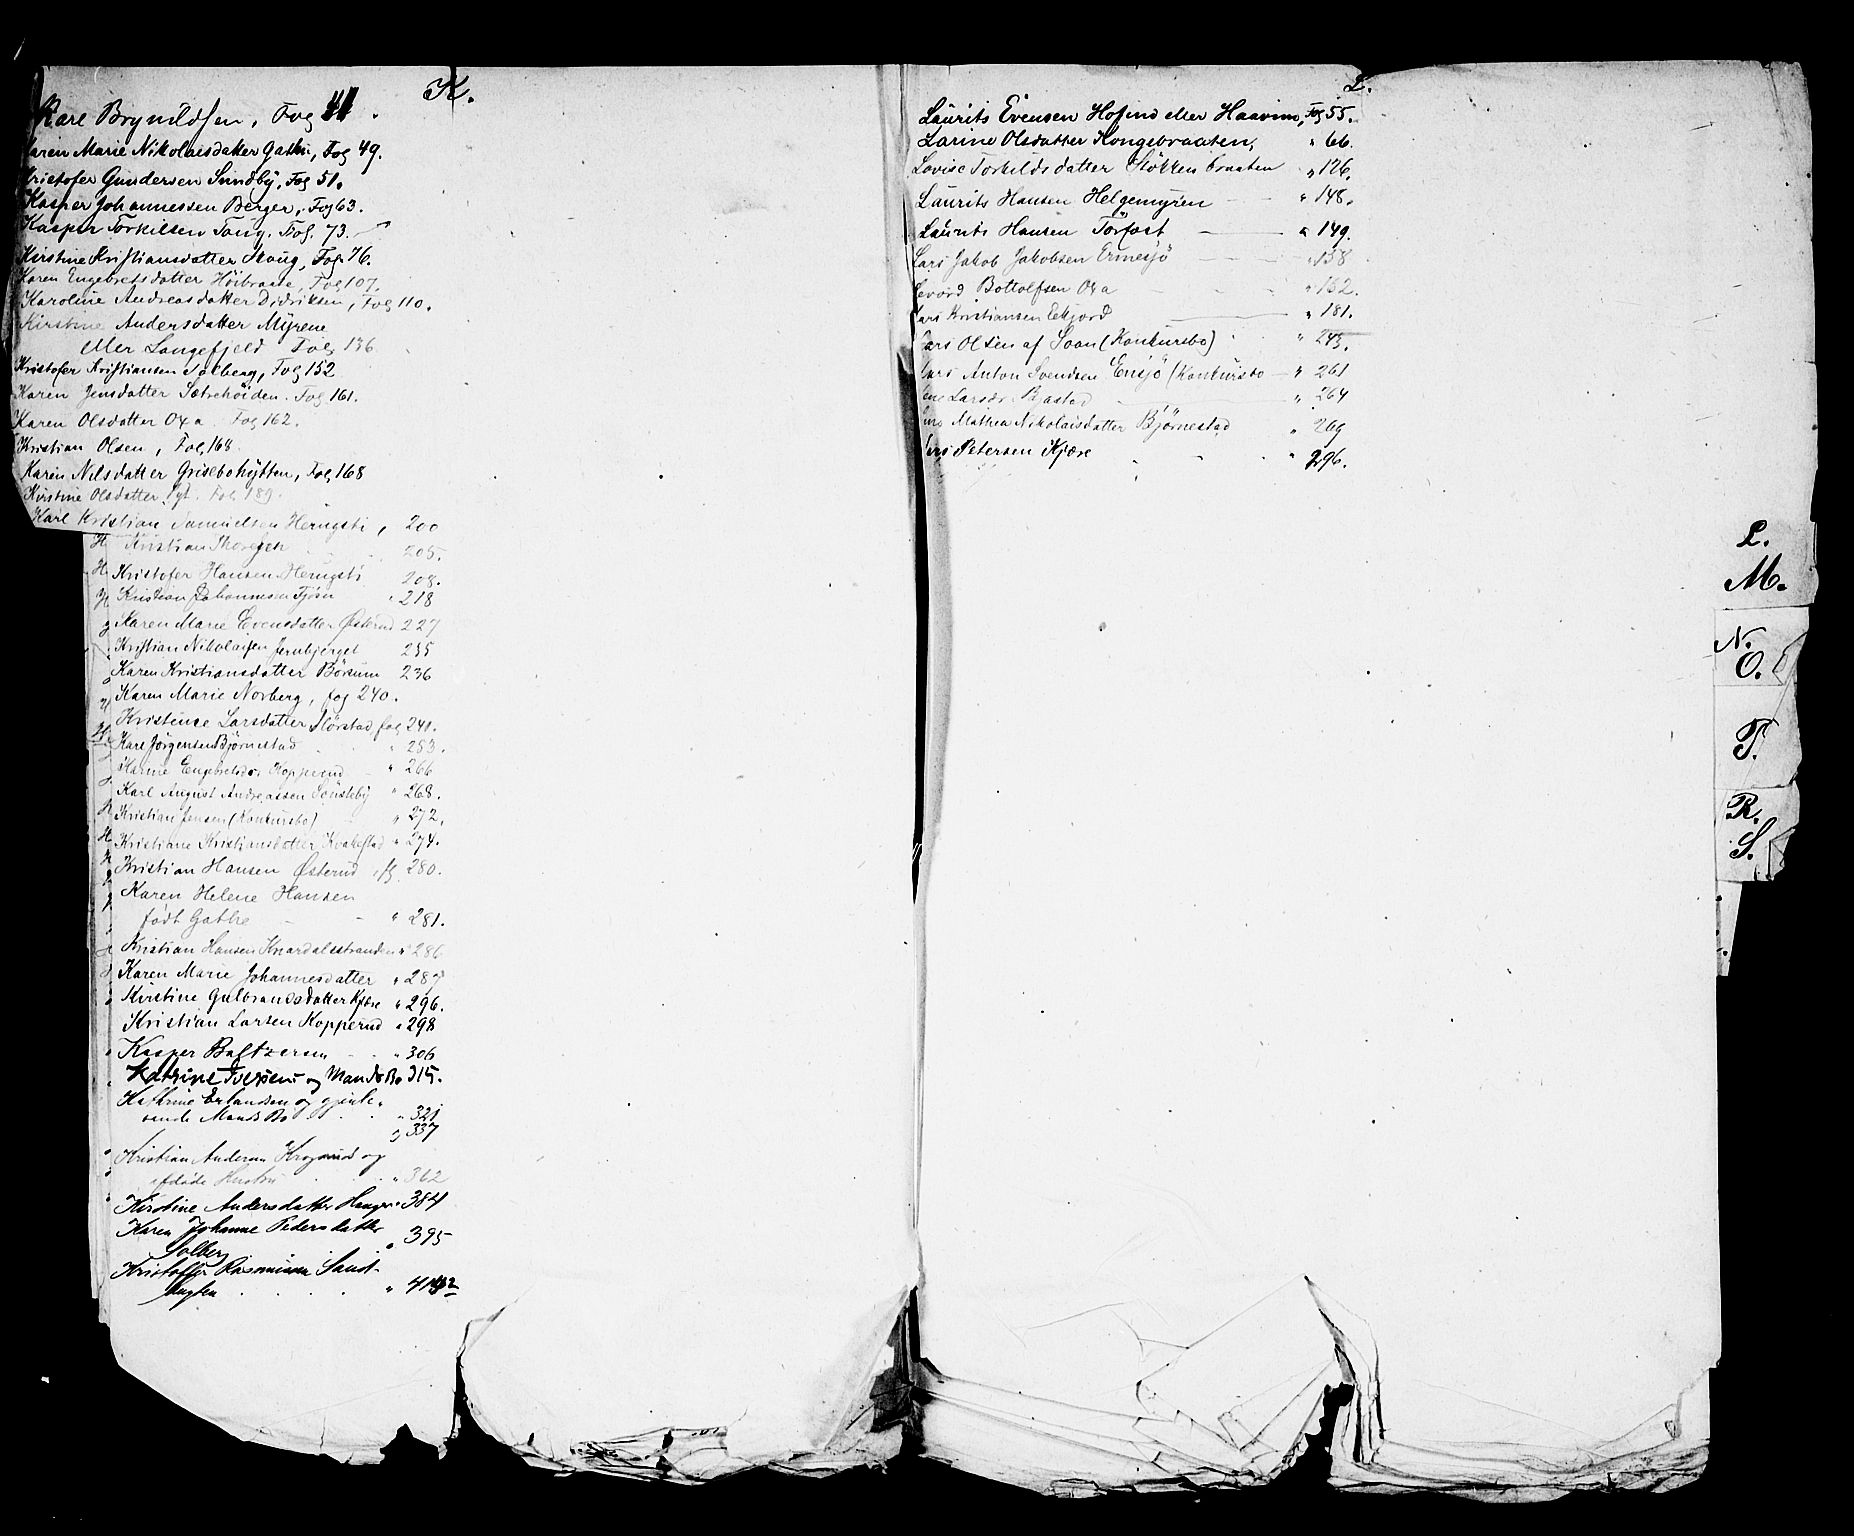 K.
Karl Brynildsen, Fog 41.
Karen Marie Nikolaisdatter Gathe, Fog 49.
Kristofer Gundersen Sundby, Fog 51.
Kasper Johannessen Berger, Fog 63.
Kasper Torkilsen Tong. Fol. 73.
Kirstine Kristiansdatter Skaug, Fog 76.
Karen Engebretsdatter Höibraate, Fog 107.
Karoline Andreasdatter Didriksen, Fog 110.
Kirstine Andersdatter Myrene
eller Langefjeld Fog 136
Kristofer Kristiansen Solberg, Fog 152
Karen Jensdatter Sætrehöiden. Fog 161.
Karen Olsdatter Oxa. Fog 162.
Kristian Olsen, Fol, 168
Karen Nilsdatter Grisebohytten, Fog 168
Kirstine Olsdatter Fog 189.
Karl Kristian Samuelsen Herugsti, 200
Kristian 205.
Kristofer Hansen Herugsti 208.
Kristian Johannesen Fjøser " 218
Karen Marie Evensdatter Østerud 227
Kristian Nikolaisen Jernbjerget 235
Karen Kristiansdatter Börsum 236
Karen Marie Norberg, fog 240.
Kristence Larsdatter Horstad fog 240.
Karl Jörgensen Bjørnestad " 253.
Karine Engebretsdr Kopperud " 266
Karl August Andreassen Sönsteby " 268.
Kristian Jensen (Konkursbo) " 272.
Kristiane Kristiansdatter Kvakestad " 274.
Kristian Hansen Østerud, fg. 280.
Karen Helene Hansen
født Gathe " 281.
Kristian Hansen Knardalsstranden " 286
Karen Marie Johannesdatter " 287
Kirstine Gulbrandsdatter Kjære " 296.
Kristian Larsen Kopperud " 298
Kasper Baltzersen " 306
Katrine Iversen og Mands Bo 315.
Kathrine Erlandsen og gjenle-
vende Mands Bo " 321
337
Kristian Andersen og
afdøde Hustru " 362
Kirstine Andersdatter Haugen " 384
Karen Johanne Pedersdatter
Solberg " 395
Kristoffer Rasmussen Sand-
bugten " 412
L.
Laurits Evensen Hofind eller Haavind, Fog 55.
Larine Olsdatter Kongebraaten, " 66.
Lovise Torkildsdatter Stökkenbraaten " 126.
Laurits Hansen Helgemyren " 148.
Laurits Hansen Torfast " 149.
Lars Jakob Jakobsen Ermesjö " 158
Levord Bottolfsen Oxa " 162.
Lars Kristiansen Eekjord " 181.
Lars Olsen af Soon (Konkursbo) " 243.
Lars Anton Svendsen Ensjö (Konkursbo " 261
Lene Larsdr " 264
Mathea Nikolaisdatter Bjørnestad " 269
Lars Petersen Kjære " 296.
L.
M.
N.
O.
P.
R.
S.